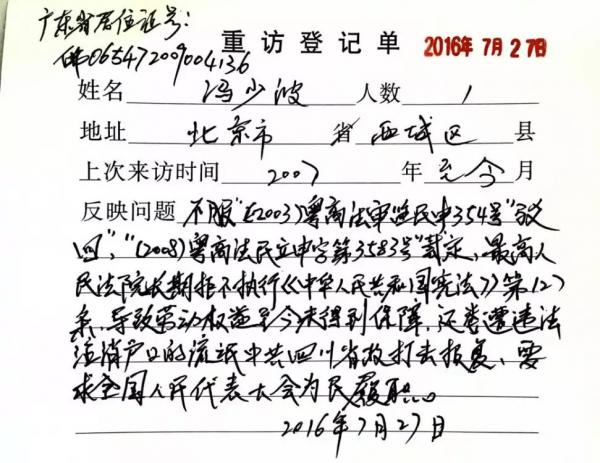 广东省居住证号：
佛065472009004136
重访登记单 2016年7月27日
姓名 冯少波 人数 1
地址 北京市 省 西城区 县
上次来访时间 2007 年 至今 月
反映问题 不服“(2003)粤高法审监民申354号”驳
回”，“(2008)粤高法民立申字第3583号”裁定，最高人
民法院长期拒不执行《中华人民共和国宪法》第127
条，导致劳动权益至今未得到保障，又类遭违法
注消户口的流氓中共四川省政打击报复，要
求全国人民代表大会为民履职。
2016年7月27日